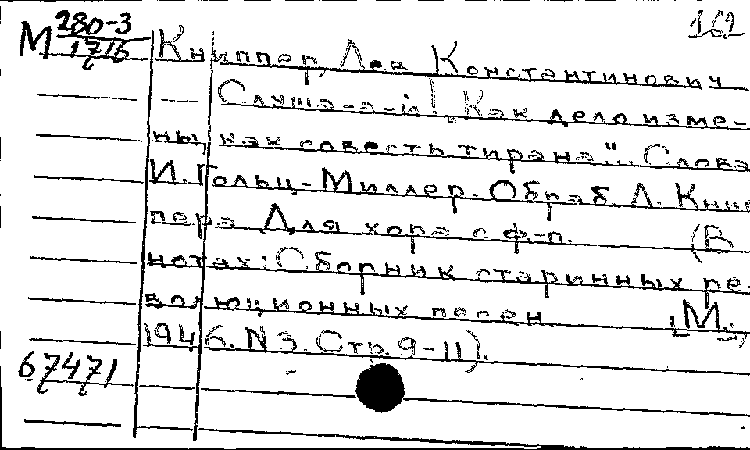 162
М 280-3
1716
Книппер, Лев Константинович
Слуша-а-й! „Как дело изме-
ны, как совесть тирана". Слова
И. Гольц-Миллер. Обраб. Л. Книп-
пера. Для хора с ф-п. (В
нотах: Сборник старинных ре-
волюционных песен [М.,
1946. N 3. Стр. 9-11).
67471